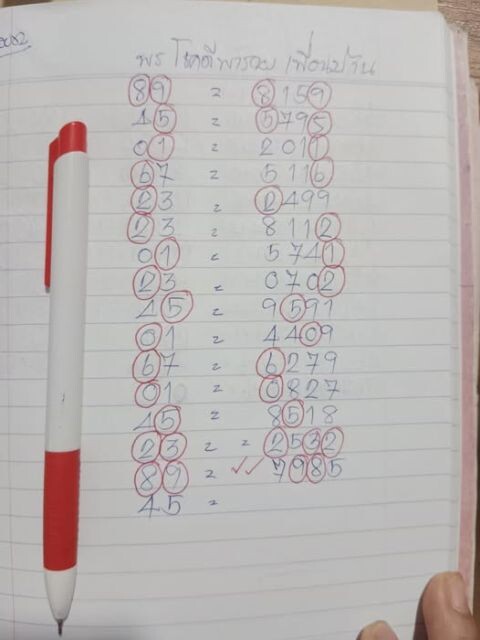 พร โชคดีพารวย เพื่อนบ้าน
89 = 8159
45 = 5795
01 = 2011
67 = 5116
23 = 2499
23 = 8112
01 = 5741
23 = 0702
45 = 9591
01 = 4409
67 = 6279
01 = 0827
45 = 8518
23 = = 2532
89 = ✓✓ 7985
45 =